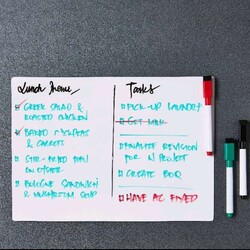 Lunch Menu
GREEK SALAD &
ROASTED CHICKEN
BAKED CHICKPEAS
& CARROTS
STIR-FRIED
BOLOGNE SANDWICH
& MUSHROOM SOUP
Tasks
PICK-UP LAUNDRY
GET MILK
FINALIZE REVISION
FOR PROJECT
CREATE BOQ
HAVE AC FIXED